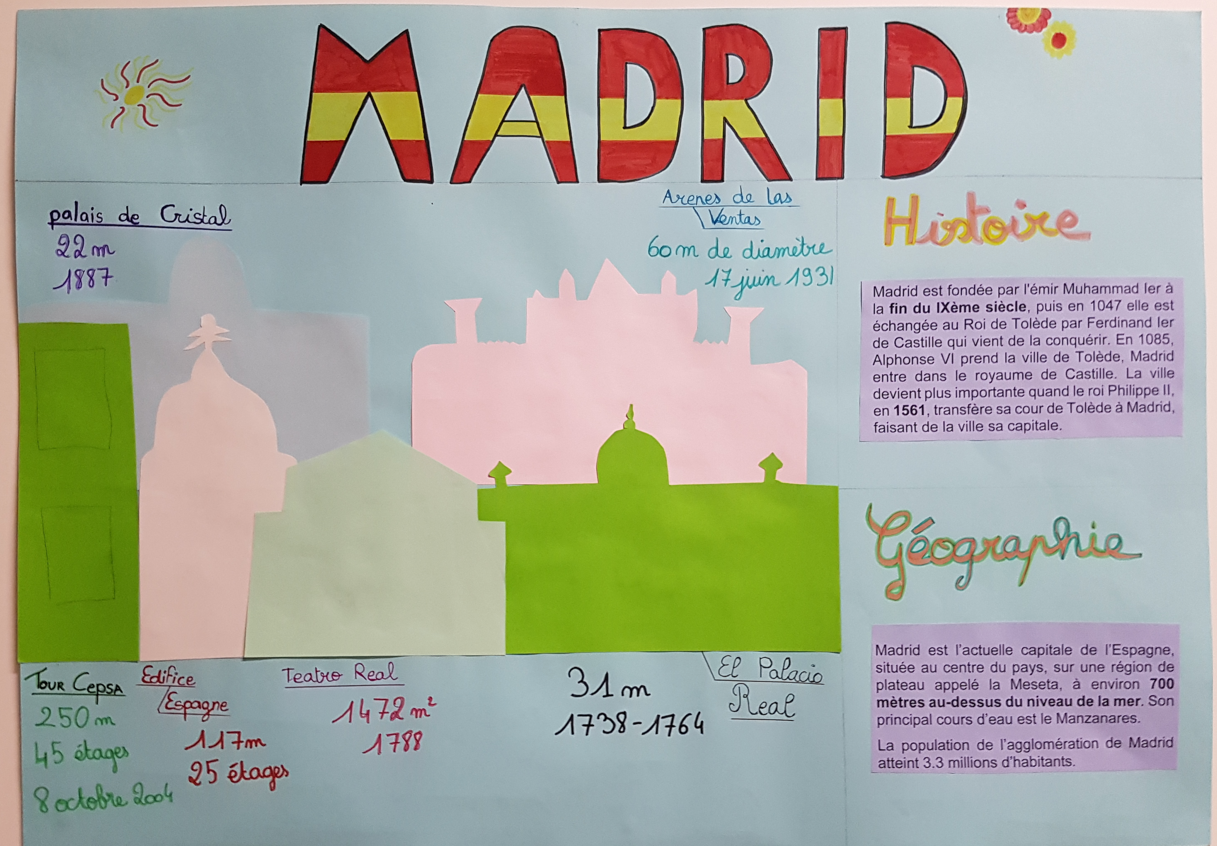 MADRID
palais de Cristal
22 m
1887
Arenes de las
Ventas
60 m de diamètre
17 juin 1931
Histoire
Madrid est fondée par l'émir Muhammad Ier à
la fin du IXème siècle, puis en 1047 elle est
échangée au Roi de Tolède par Ferdinand Ier
de Castille qui vient de la conquérir. En 1085,
Alphonse VI prend la ville de Tolède, Madrid
entre dans le royaume de Castille. La ville
devient plus importante quand le roi Philippe II,
en 1561, transfère sa cour de Tolède à Madrid,
faisant de la ville sa capitale.
Géographie
Madrid est l'actuelle capitale de l'Espagne,
située au centre du pays, sur une région de
plateau appelé la Meseta, à environ 700
mètres au-dessus du niveau de la mer. Son
principal cours d'eau est le Manzanares.
La population de l'agglomération de Madrid
atteint 3.3 millions d'habitants.
Tour Cepsa
250 m
45 étages
8 octobre 2004
Edifice
Espagne
117m
25 étages
Teatro Real
1472 m²
1788
31 m
1738-1764
El Palacio
Real